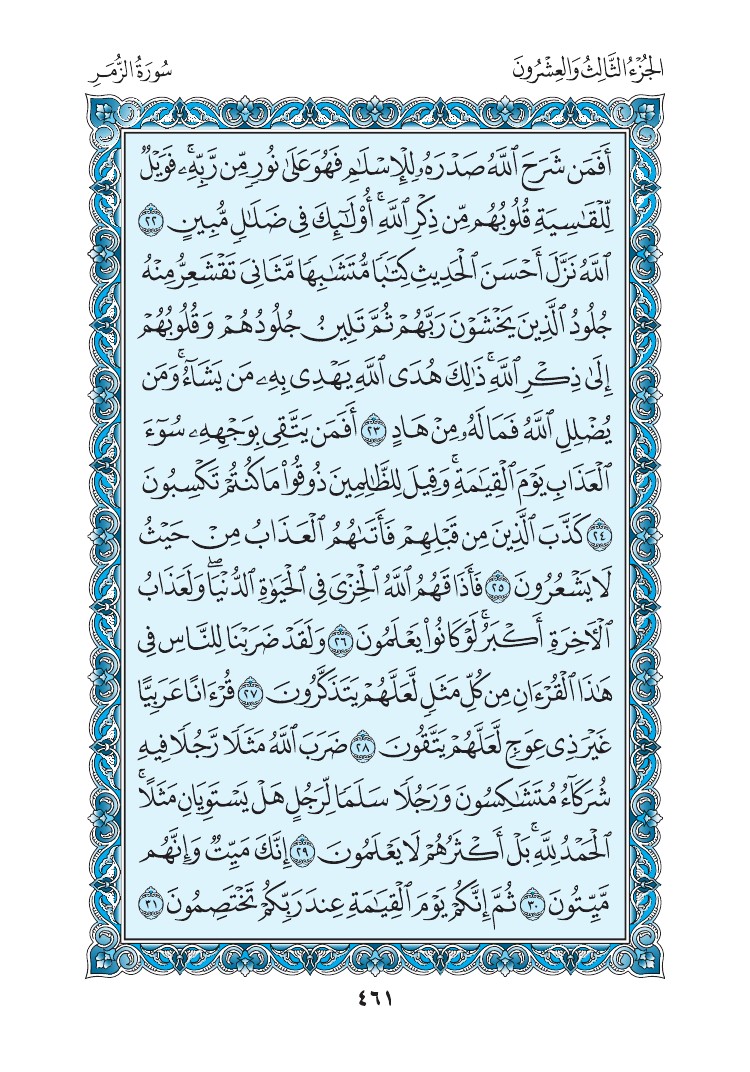 الجُزْءُ الثَّالِثُ وَالعِشْرُونَ
سُورَةُ الزُّمَرِ
أَفَمَن شَرَحَ ٱللَّهُ صَدْرَهُۥ لِلْإِسْلَٰمِ فَهُوَ عَلَىٰ نُورٍ مِّن رَّبِّهِۦۚ فَوَيْلٌ
لِّلْقَٰسِيَةِ قُلُوبُهُم مِّن ذِكْرِ ٱللَّهِۚ أُو۟لَٰٓئِكَ فِى ضَلَٰلٍ مُّبِينٍ ٢٢
ٱللَّهُ نَزَّلَ أَحْسَنَ ٱلْحَدِيثِ كِتَٰبًا مُّتَشَٰبِهًا مَّثَانِىَ تَقْشَعِرُّ مِنْهُ
جُلُودُ ٱلَّذِينَ يَخْشَوْنَ رَبَّهُمْ ثُمَّ تَلِينُ جُلُودُهُمْ وَقُلُوبُهُمْ
إِلَىٰ ذِكْرِ ٱللَّهِۚ ذَٰلِكَ هُدَى ٱللَّهِ يَهْدِى بِهِۦ مَن يَشَآءُۚ وَمَن
يُضْلِلِ ٱللَّهُ فَمَا لَهُۥ مِنْ هَادٍ ٢٣ أَفَمَن يَتَّقِى بِوَجْهِهِۦ سُوٓءَ
ٱلْعَذَابِ يَوْمَ ٱلْقِيَٰمَةِۚ وَقِيلَ لِلظَّٰلِمِينَ ذُوقُوا۟ مَا كُنتُمْ تَكْسِبُونَ
٢٤ كَذَّبَ ٱلَّذِينَ مِن قَبْلِهِمْ فَأَتَىٰهُمُ ٱلْعَذَابُ مِنْ حَيْثُ
لَا يَشْعُرُونَ ٢٥ فَأَذَاقَهُمُ ٱللَّهُ ٱلْخِزْىَ فِى ٱلْحَيَوٰةِ ٱلدُّنْيَاۖ وَلَعَذَابُ
ٱلْءَاخِرَةِ أَكْبَرُۚ لَوْ كَانُوا۟ يَعْلَمُونَ ٢٦ وَلَقَدْ ضَرَبْنَا لِلنَّاسِ فِى
هَٰذَا ٱلْقُرْءَانِ مِن كُلِّ مَثَلٍ لَّعَلَّهُمْ يَتَذَكَّرُونَ ٢٧ قُرْءَانًا عَرَبِيًّا
غَيْرَ ذِى عِوَجٍ لَّعَلَّهُمْ يَتَّقُونَ ٢٨ ضَرَبَ ٱللَّهُ مَثَلًا رَّجُلًا فِيهِ
شُرَكَآءُ مُتَشَٰكِسُونَ وَرَجُلًا سَلَمًا لِّرَجُلٍ هَلْ يَسْتَوِيَانِ مَثَلًاۚ
ٱلْحَمْدُ لِلَّهِۚ بَلْ أَكْثَرُهُمْ لَا يَعْلَمُونَ ٢٩ إِنَّكَ مَيِّتٌ وَإِنَّهُم
مَّيِّتُونَ ٣٠ ثُمَّ إِنَّكُمْ يَوْمَ ٱلْقِيَٰمَةِ عِندَ رَبِّكُمْ تَخْتَصِمُونَ ٣١
٤٦١